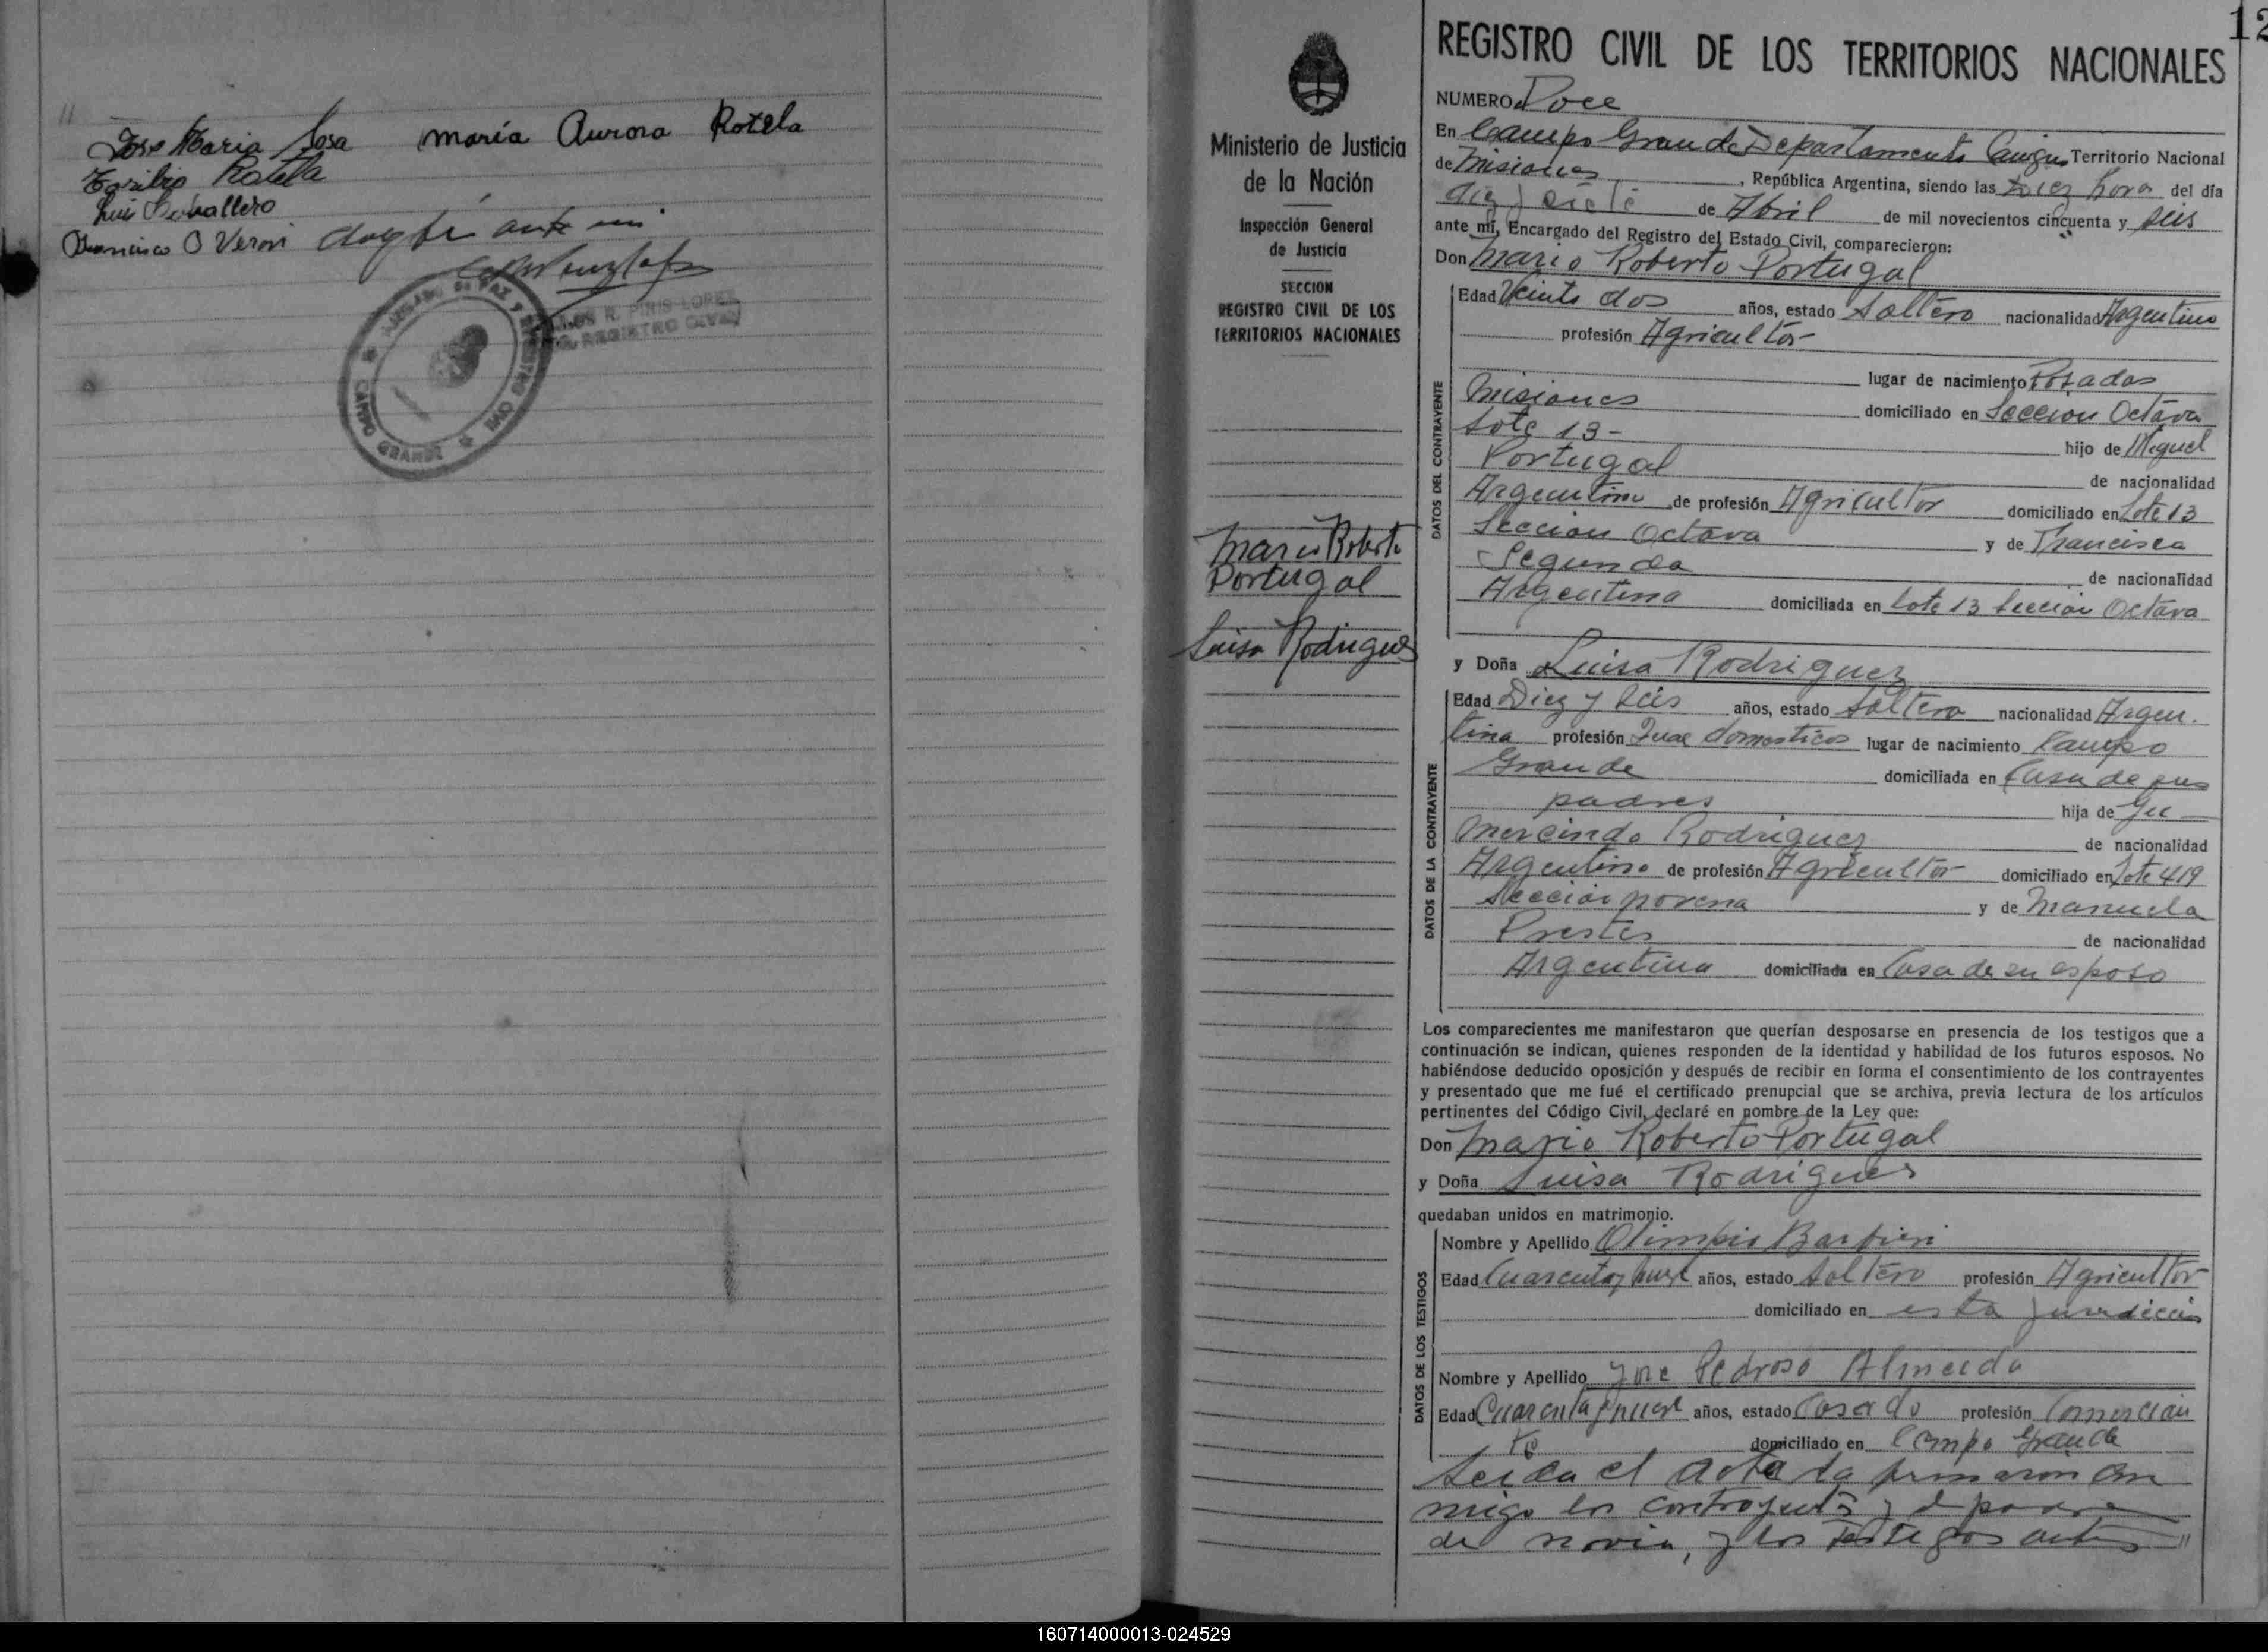 11
Jose Maria Sosa María Aurora Rotela
Rotela
Luis Caballero
Francisco O Veron doy fé ante mi
JUZGADO DE PAZ Y REGISTRO CIVIL
CAMPO GRANDE
R. PIRIS LOPEZ
REGISTRO CIVIL
Ministerio de Justicia
de la Nación
Inspección General
de Justicia
SECCION
REGISTRO CIVIL DE LOS
TERRITORIOS NACIONALES
Mario Roberto
Portugal
Luisa Rodrigues
12
REGISTRO CIVIL DE LOS TERRITORIOS NACIONALES
NUMERO Doce
En Campo Grande Departamento Cainguas Territorio Nacional
de Misiones, República Argentina, siendo las Diez hora del día
diez y siete de Abril de mil novecientos cincuenta y seis
ante mí, Encargado del Registro del Estado Civil, comparecieron:
Don Mario Roberto Portugal
DATOS DEL CONTRAYENTE
Edad Veinte dos años, estado Soltero nacionalidad Argentino
profesión Agricultor
lugar de nacimiento Posadas
Misiones domiciliado en Seccion Octava
Lote 13- hijo de Miguel
Portugal de nacionalidad
Argentino de profesión Agricultor domiciliado en Lote 13
Seccion Octava y de Francisca
Segunda de nacionalidad
Argentina domiciliada en Lote 13 Seccion Octava
y Doña Luisa Rodriguez
DATOS DE LA CONTRAYENTE
Edad Diez y seis años, estado Soltera nacionalidad Argen-
tina profesión Quae domesticos lugar de nacimiento Campo
Grande domiciliada en Casa de sus
padres hija de Gu-
mercindo Rodriguez de nacionalidad
Argentino de profesión Agricultor domiciliado en Lote 419
Seccion novena y de Manuela
Prestes de nacionalidad
Argentina domiciliada en Casa de su esposo
Los comparecientes me manifestaron que querían desposarse en presencia de los testigos que a
continuación se indican, quienes responden de la identidad y habilidad de los futuros esposos. No
habiéndose deducido oposición y después de recibir en forma el consentimiento de los contrayentes
y presentado que me fué el certificado prenupcial que se archiva, previa lectura de los artículos
pertinentes del Código Civil, declaré en nombre de la Ley que:
Don Mario Roberto Portugal
y Doña Luisa Rodrigues
quedaban unidos en matrimonio.
DATOS DE LOS TESTIGOS
Nombre y Apellido Olimpio Barbieri
Edad Cuarenta y nueve años, estado Soltero profesión Agricultor
domiciliado en esta jurisdiccion
Nombre y Apellido Jose Pedroso Almeida
Edad Cuarenta y nueve años, estado Casado profesión Comercian
te domiciliado en Campo Grande
Leida el acta la firmaron con
migo los contrayentes y el padre
de novia, y los testigos antes "
160714000013-024529